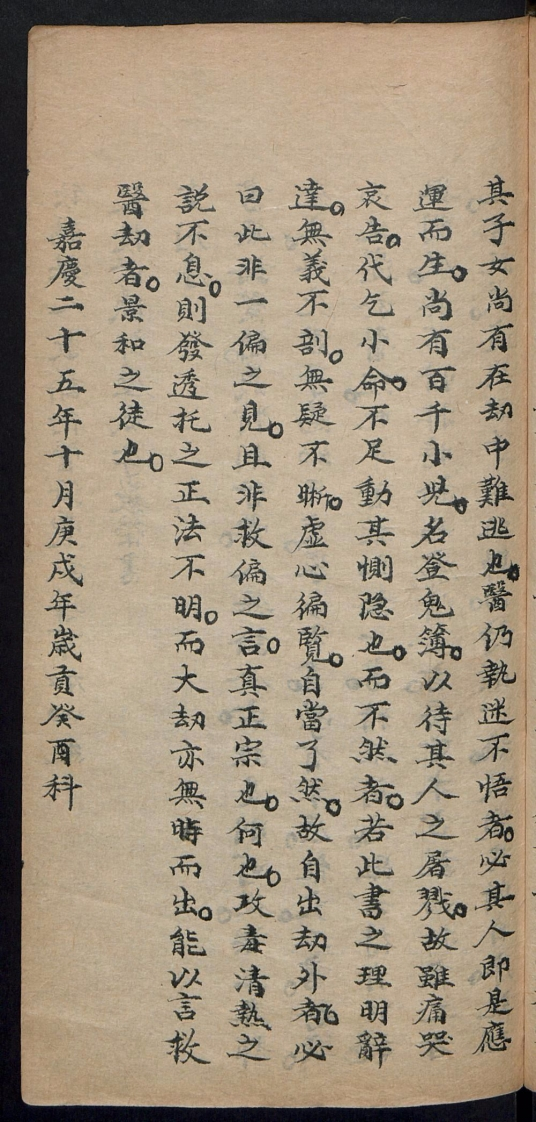 其子女尚有在劫中難逃也。醫仍執迷不悟者。必其人即是應
運而生。尚有百千小児。名登鬼簿。以待其人之屠戮。故雖痛哭
哀告。代乞小命。不足動其惻隐也。而不然者。若此書之理明辭
達。無義不剖。無疑不晰。虛心徧覽。自當了然。故自出劫外者。必
曰此非一偏之見。且非救偏之言。真正宗也。何也。攻毒清熱之
說不息。則發透托之正法不明。而大劫亦無時而出。能以言救
醫劫者。景和之徒也。
嘉慶二十五年十月庚戌年歲貢癸酉科